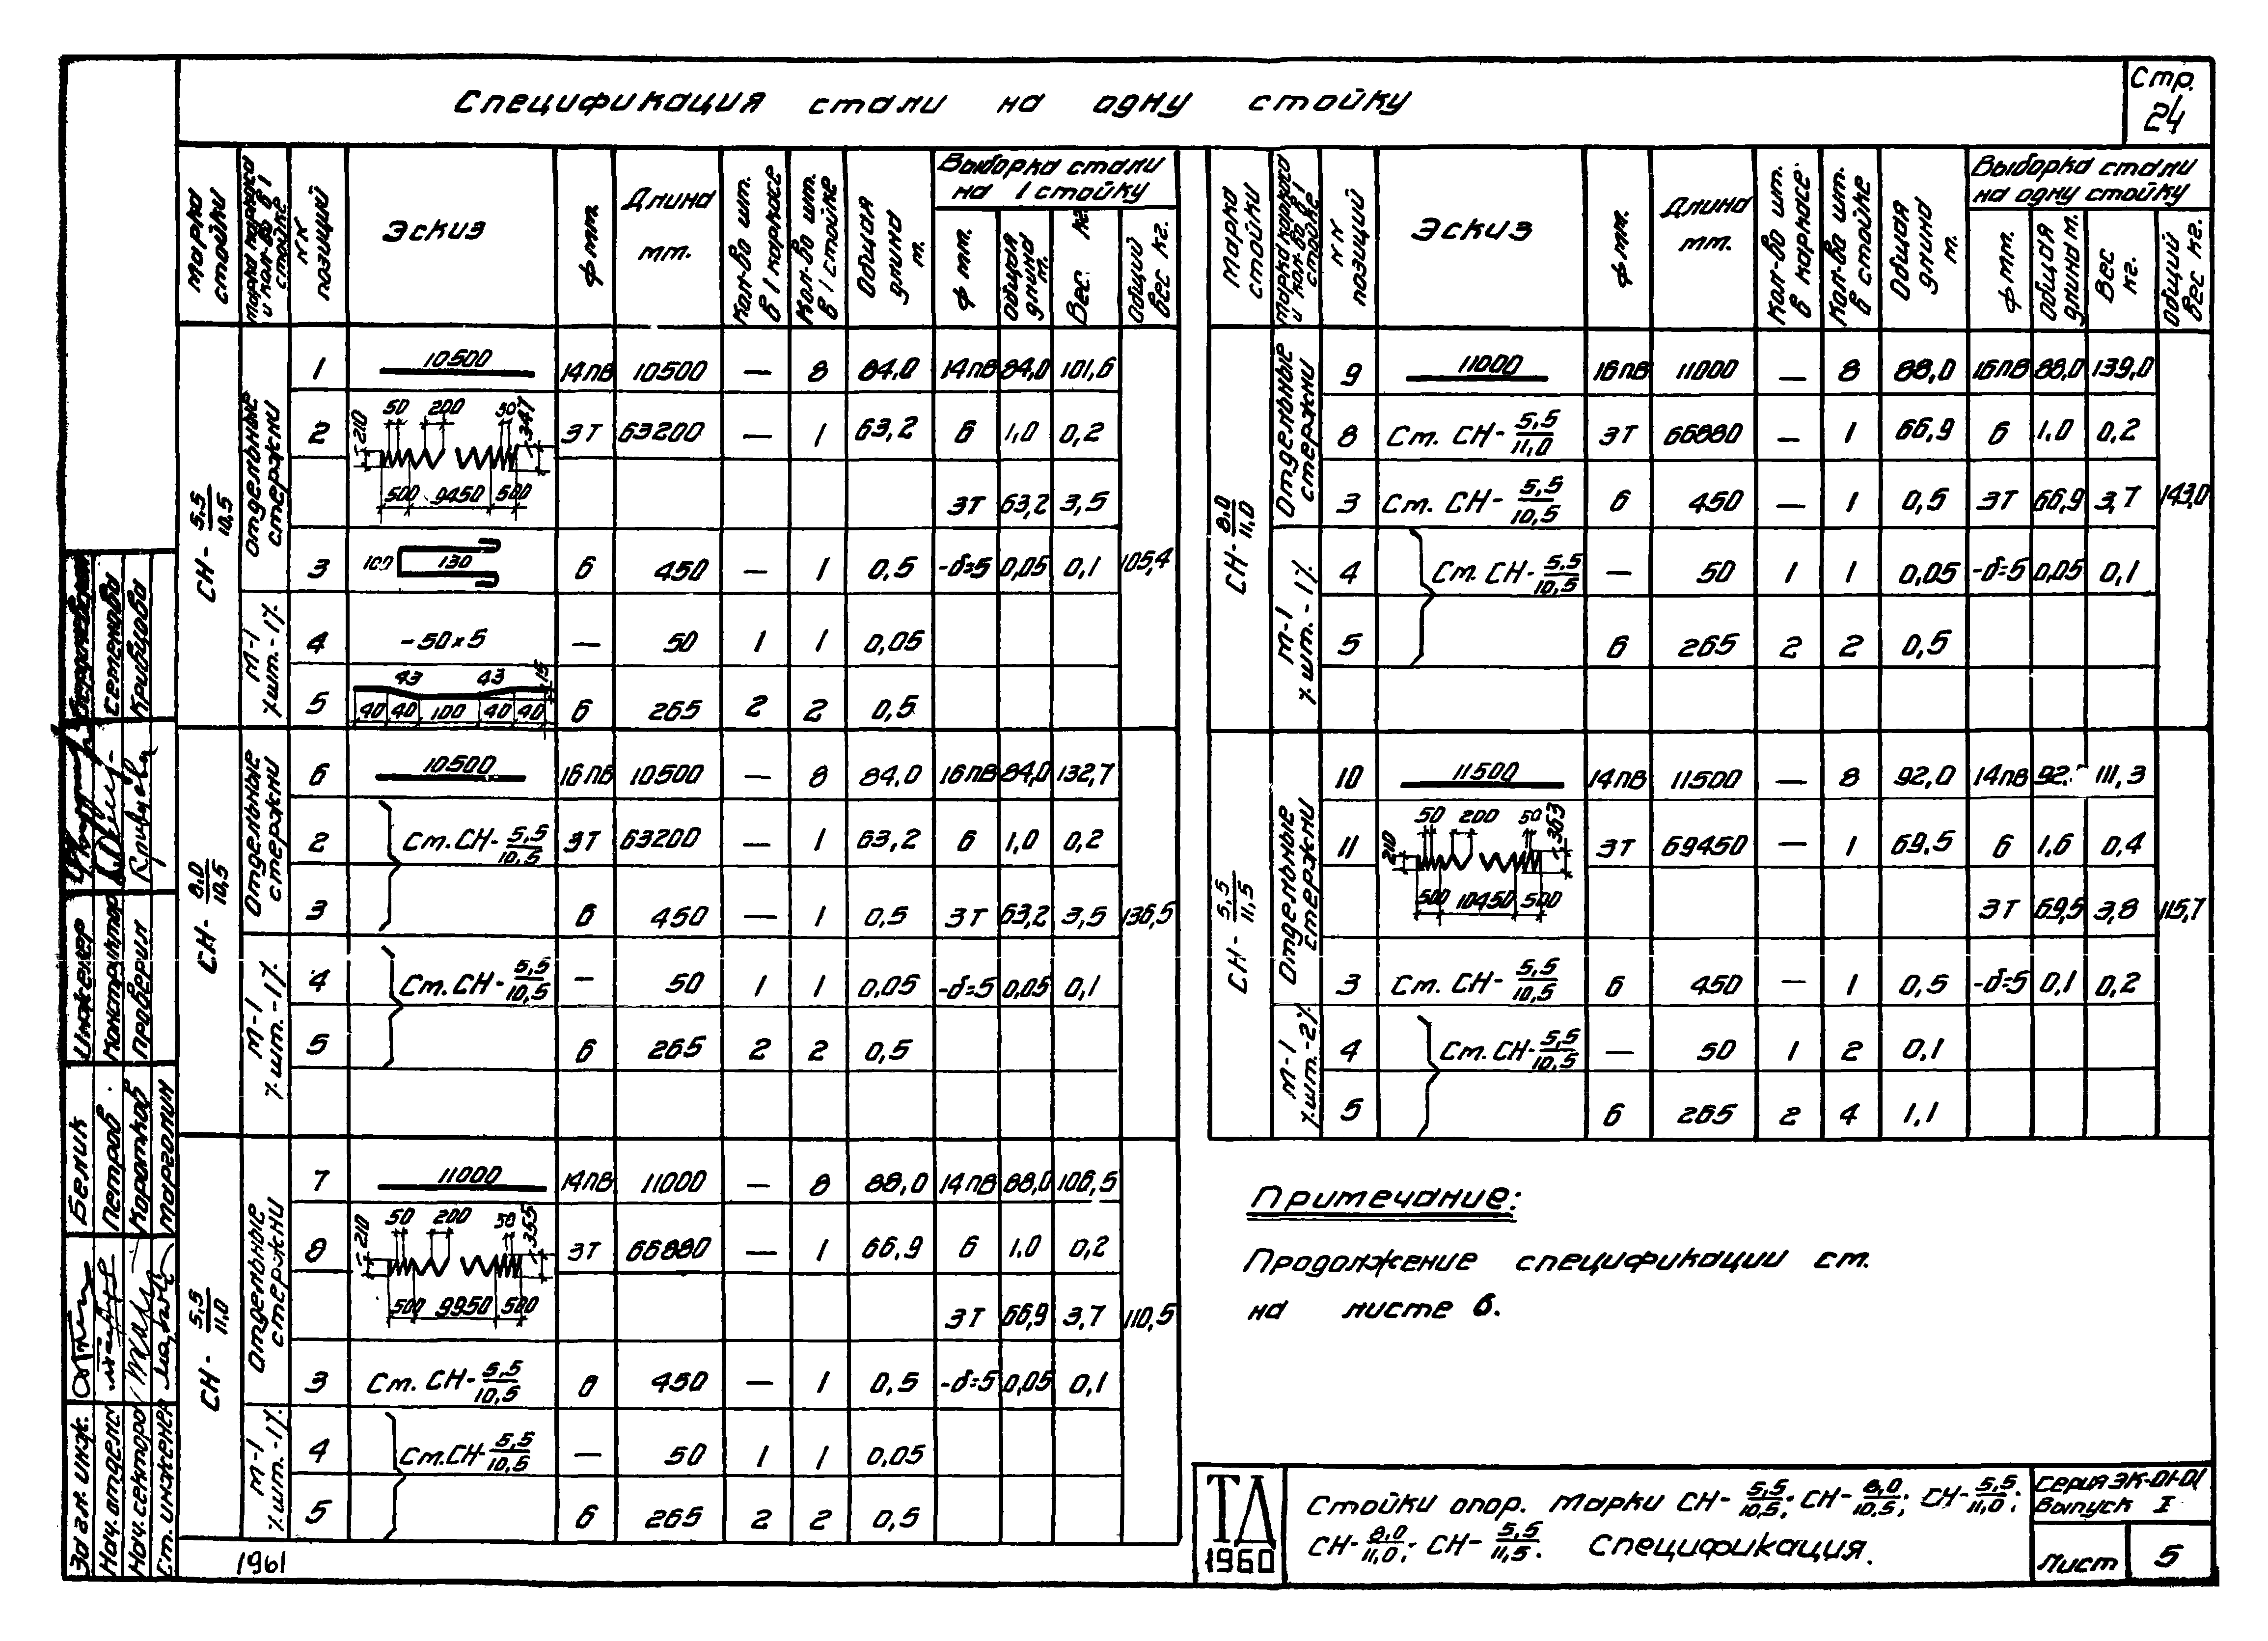 Спецификация стали на одну стойку
Стр. 24
Марка стойки | Марка каркаса и кол-во в 1 стойке | NN позиций | Эскиз | ф мм. | Длина мм. | Кол-во шт. в 1 каркасе | Кол-во шт. в 1 стойке | Общая длина м. | Выборка стали на 1 стойку
ф мм. | Общая длина м. | Вес. кг. | Общий вес кг.
СН- 5,5/10,5
Отдельные стержни
1 | 10500 | 14ПВ | 10500 | — | 8 | 84,0 | 14ПВ | 84,0 | 101,6
2 | 210 50 200 50 347 500 9450 500 | 3Т | 63200 | — | 1 | 63,2 | 6 | 1,0 | 0,2
3Т | 63,2 | 3,5
3 | 100 130 | 6 | 450 | — | 1 | 0,5 | -δ=5 | 0,05 | 0,1 | 105,4
М-1 шт.-1
4 | -50×5 | — | 50 | 1 | 1 | 0,05
5 | 43 43 15 40 40 100 40 40 | 6 | 265 | 2 | 2 | 0,5
СН- 8,0/10,5
Отдельные стержни
6 | 10500 | 16ПВ | 10500 | — | 8 | 84,0 | 16ПВ | 84,0 | 132,7
2 | Ст. СН- 5,5/10,5 | 3Т | 63200 | — | 1 | 63,2 | 6 | 1,0 | 0,2
3 | 6 | 450 | — | 1 | 0,5 | 3Т | 63,2 | 3,5 | 136,5
М-1 шт.-1
4 | Ст. СН- 5,5/10,5 | — | 50 | 1 | 1 | 0,05 | -δ=5 | 0,05 | 0,1
5 | 6 | 265 | 2 | 2 | 0,5
СН- 5,5/11,0
Отдельные стержни
7 | 11000 | 14ПВ | 11000 | — | 8 | 88,0 | 14ПВ | 88,0 | 106,5
8 | 210 50 200 50 355 500 9950 500 | 3Т | 66880 | — | 1 | 66,9 | 6 | 1,0 | 0,2
3Т | 66,9 | 3,7 | 110,5
3 | Ст. СН- 5,5/10,5 | 6 | 450 | — | 1 | 0,5 | -δ=5 | 0,05 | 0,1
М-1 шт.-1
4 | Ст. СН- 5,5/10,5 | — | 50 | 1 | 1 | 0,05
5 | 6 | 265 | 2 | 2 | 0,5
1961
Марка стойки | Марка каркаса и кол-во в 1 стойке | NN позиций | Эскиз | ф мм. | Длина мм. | Кол-во шт. в каркасе | Кол-во шт. в стойке | Общая длина м. | Выборка стали на одну стойку
ф мм. | Общая длина м. | Вес кг. | Общий вес кг.
СН- 8,0/11,0
Отдельные стержни
9 | 11000 | 16ПВ | 11000 | — | 8 | 88,0 | 16ПВ | 88,0 | 139,0
8 | Ст. СН- 5,5/11,0 | 3Т | 66880 | — | 1 | 66,9 | 6 | 1,0 | 0,2
3 | Ст. СН- 5,5/10,5 | 6 | 450 | — | 1 | 0,5 | 3Т | 66,9 | 3,7 | 143,0
М-1 шт.-1
4 | Ст. СН- 5,5/10,5 | — | 50 | 1 | 1 | 0,05 | -δ=5 | 0,05 | 0,1
5 | 6 | 265 | 2 | 2 | 0,5
СН- 5,5/11,5
Отдельные стержни
10 | 11500 | 14ПВ | 11500 | — | 8 | 92,0 | 14ПВ | 92, | 111,3
11 | 210 50 200 50 363 500 10450 500 | 3Т | 69450 | — | 1 | 69,5 | 6 | 1,6 | 0,4
3Т | 69,5 | 3,8 | 115,7
3 | Ст. СН- 5,5/10,5 | 6 | 450 | — | 1 | 0,5 | -δ=5 | 0,1 | 0,2
М-1 шт.-2
4 | Ст. СН- 5,5/10,5 | — | 50 | 1 | 2 | 0,1
5 | 6 | 265 | 2 | 4 | 1,1
Примечание:
Продолжение спецификации см.
на листе 6.
ТД
1960
Стойки опор. Марки СН- 5,5/10,5; СН- 8,0/10,5; СН- 5,5/11,0;
СН- 8,0/11,0; СН- 5,5/11,5. Спецификация.
Серия ЭК-01-01
Выпуск I
Лист 5
Инженер
Конструктор Семенова
Проверил Кривцова
Белик
Нач. отдела Петров
Нач. сектора Коротков
Ст. инженер Марголин